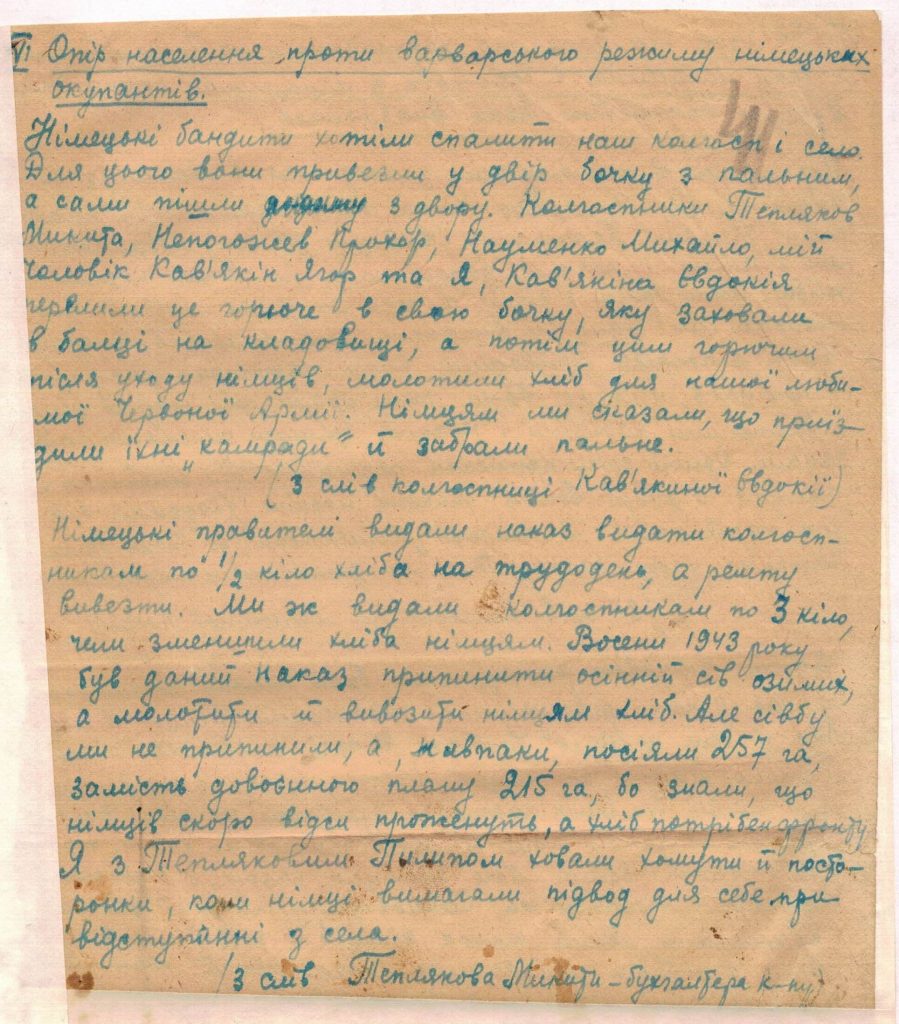 VI Опір населення проти варварського режиму німецьких
окупантів.
Німецькі бандити хотіли спалити наш колгосп і село.
Для цього вони привезли у двір бочку з пальним,
а сами пішли з двору. Колгоспники Тепляков
Микита, Непогожев Прохор, Науменко Михайло, мій
чоловік Кав'якін Ягор та Я, Кав'якіна Євдокія
перелили це горюче в свою бочку, яку заховали
в балці на кладовищі, а потім цим горючим
після уходу німців, молотили хліб для нашої люби-
мої Червоної Армії. Німцям ми сказали, що приїз-
дили їхні „камради" й забрали пальне.
(З слів колгоспниці Кав'якиної Євдокії)
Німецькі правителі видали наказ видати колгосп-
никам по 1/2 кіло хліба на трудодень, а решту
вивезти. Ми ж видали колгоспникам по 3 кіло,
чим зменшили хліба німцям. Восени 1943 року
був даний наказ припинити осінній сів озимих,
а молотити й вивозити німцям хліб. Але сівбу
ми не припинили, а, навпаки, посіяли 257 га,
замість довоєнного плану 215 га, бо знали, що
німців скоро відси проженуть, а хліб потрібен фронту
Я з Тепляковим Пилипом ховали хомути й посто-
ронки, коли німці вимагали підвод для себе при
відступінні з села.
(З слів Теплякова Микити – бухгалтера к-пу)